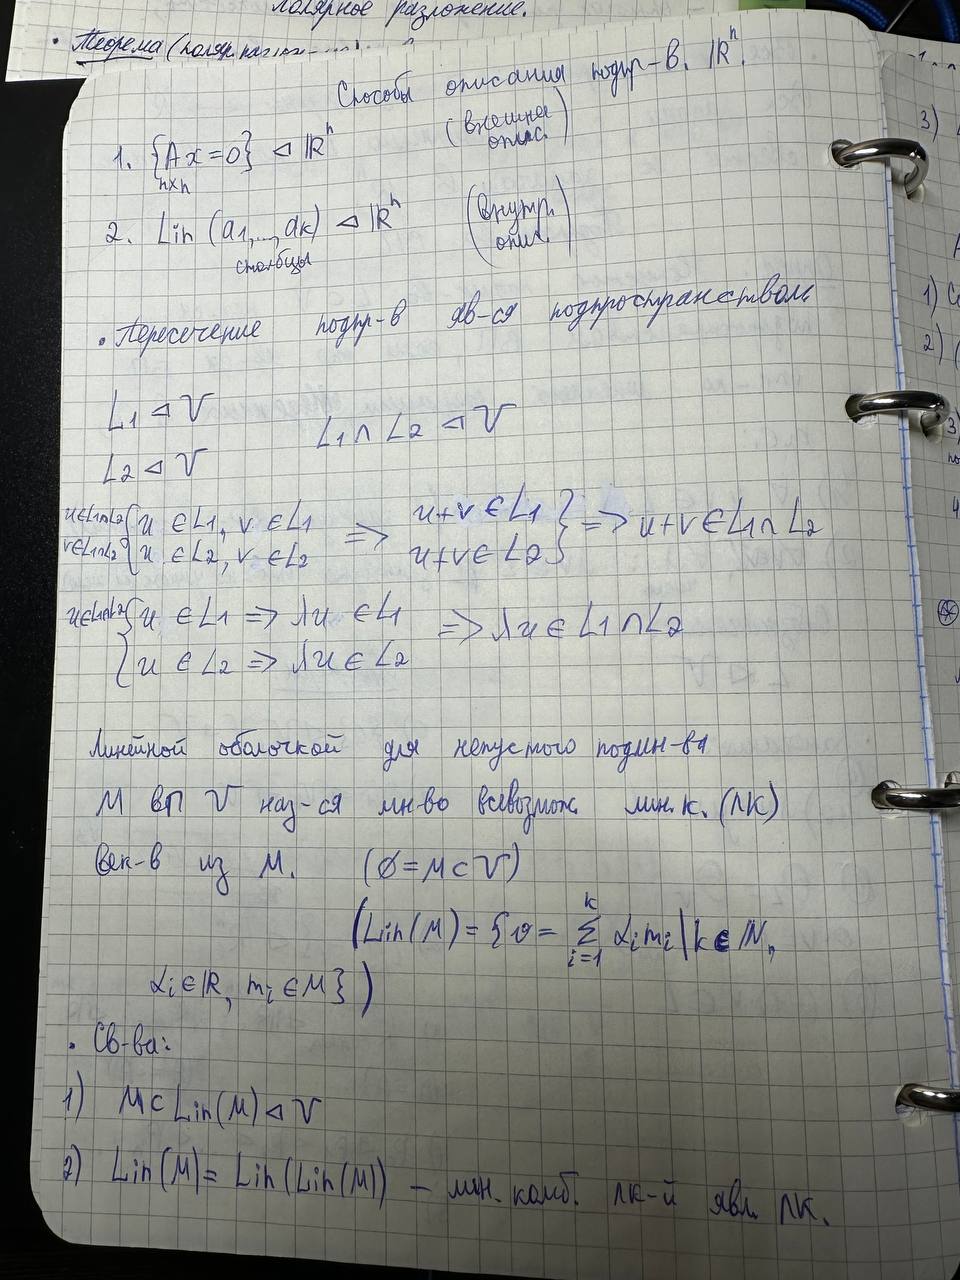 Полярное разложение.
• Теорема (поляр.
Способы описания подпр-в. ℝⁿ.
1. {Ax=0} ⊲ ℝⁿ (внешнее опис.)
n×n
2. Lin (a₁,...,aₖ) ⊲ ℝⁿ (внутр. опис.)
столбцы
• Пересечение подпр-в яв-ся подпространством
L₁ ⊲ V
L₁∩L₂ ⊲ V
L₂ ⊲ V
u∈L₁∩L₂ { u ∈L₁, v ∈L₁ => u+v∈L₁ } => u+v∈L₁∩L₂
v∈L₁∩L₂ { u ∈L₂, v ∈L₂ u+v∈L₂
u∈L₁∩L₂ { u ∈L₁ => λu ∈L₁ => λu∈L₁∩L₂
u ∈L₂ => λu∈L₂
Линейной оболочкой для непустого подмн-ва
M вп V наз-ся мн-во всевозмож. лин.к. (ЛК)
век-в из M. (∅=M⊂V)
(Lin(M) = {v = Σᵢ₌₁ᵏ αᵢmᵢ | k∈ℕ,
αᵢ∈ℝ, mᵢ∈M})
• Св-ва:
1) M⊂Lin(M)⊲V
2) Lin(M)= Lin(Lin(M)) – лин. комб. ЛК-й явл. ЛК.
3)
1)
2)
3)
4